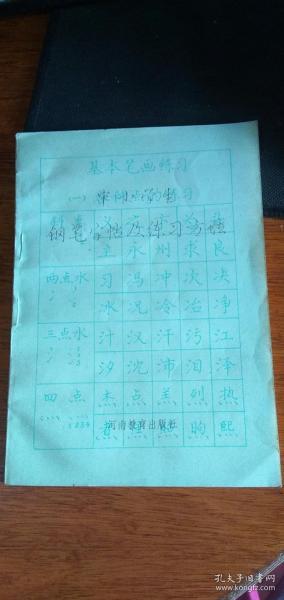 基本笔画练习
(一)
练习
钢笔字帖及练习方法
主 永 州 求 良
两点水 习 冯 冲 次 决
冰 况 冷 冶 净
三点水 汁 汉 汗 污 江
汐 沈 沛 泪 泽
四点 杰 点 羔 烈 热
河南教育出版社
煦 熙
孔夫子旧书网